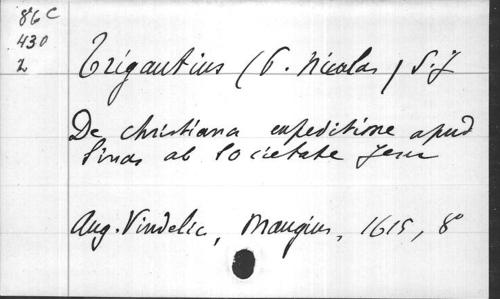 86 C
430
2
Trigautius (P. Nicolas) S.J
De christiana expeditione apud
Sinas ab Societate Jesu
Aug. Vindelic, Mangius, 1615, 8°